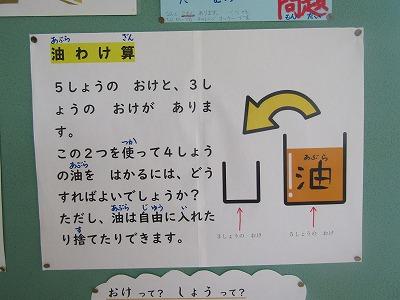 問題
もん だい
あぶら　ざん
油わけ算
５しょうの　おけと、３し
ょうの　おけが　ありま
す。
つか
この２つを使って４しょう
あぶら
の油を　はかるには、どう
すればよいでしょうか？
あぶら　じゆう　い
ただし、油は自由に入れた
す
り捨てたりできます。
あぶら
油
３しょうの　おけ
５しょうの　おけ
おけ って？　しょう って？